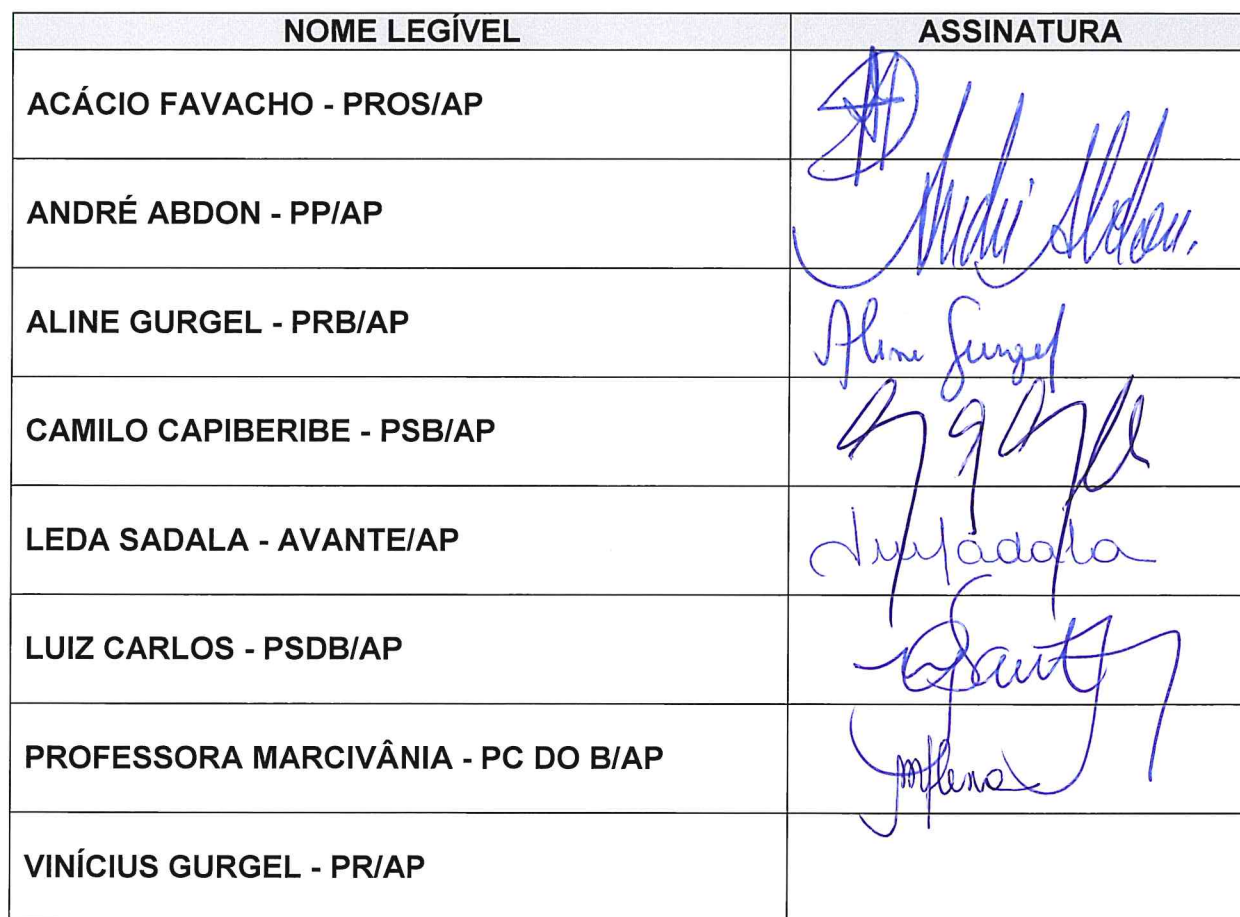 NOME LEGÍVEL ASSINATURA
ACÁCIO FAVACHO - PROS/AP
ANDRÉ ABDON - PP/AP André Abdon.
ALINE GURGEL - PRB/AP Aline Gurgel
CAMILO CAPIBERIBE - PSB/AP
LEDA SADALA - AVANTE/AP
LUIZ CARLOS - PSDB/AP
PROFESSORA MARCIVÂNIA - PC DO B/AP
VINÍCIUS GURGEL - PR/AP